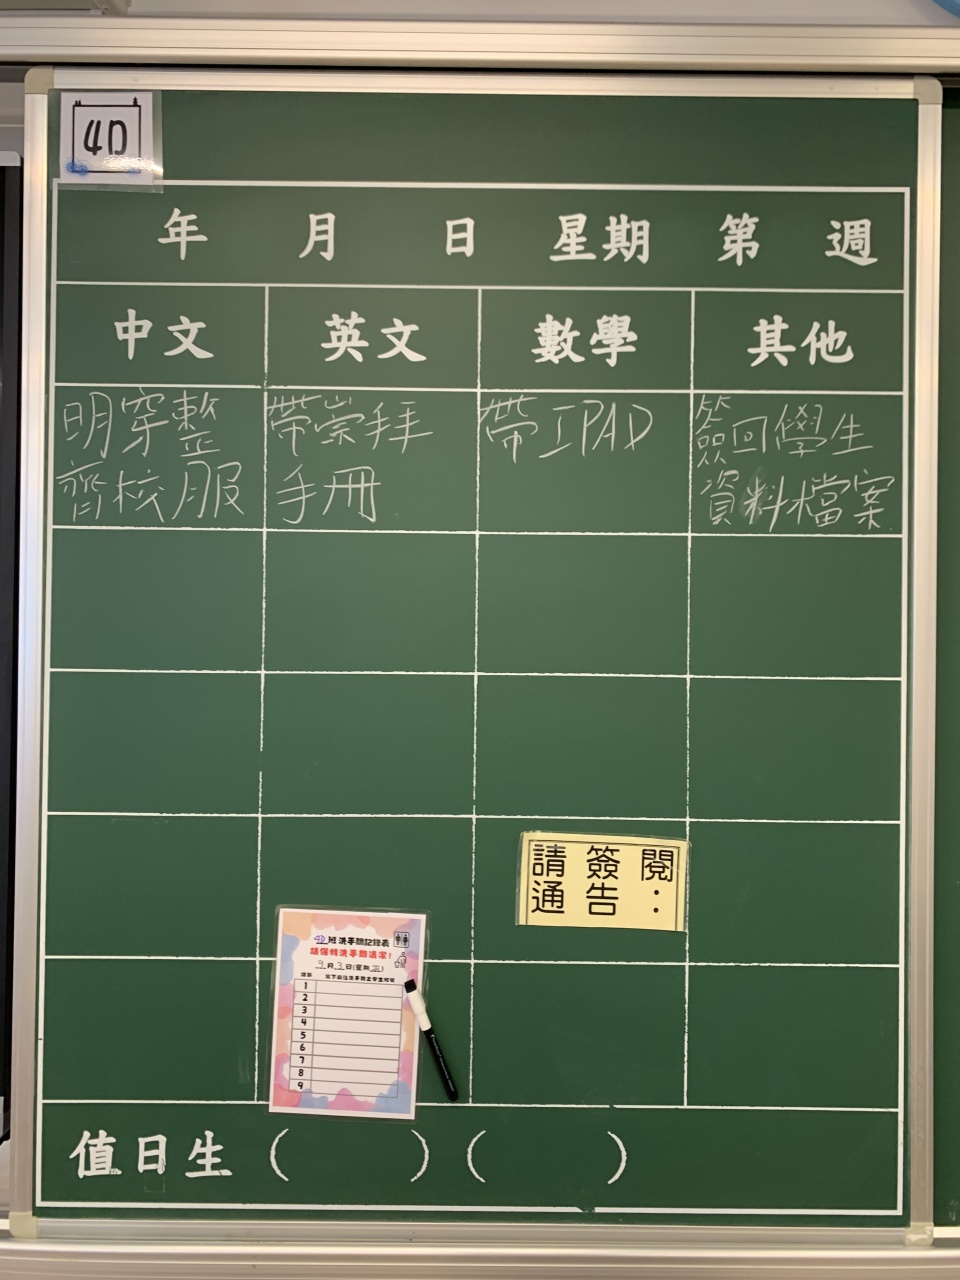 4D
年 月 日 星期 第 週
中文 英文 數學 其他
明穿整
齊校服
帶崇拜
手冊
帶IPAD
簽回學生
資料檔案
請簽閱
通告：
4D班洗手間記錄表
請保持洗手間清潔！
9月3日(星期三)
1
2
3
4
5
6
7
8
9
值日生 ( ) ( )